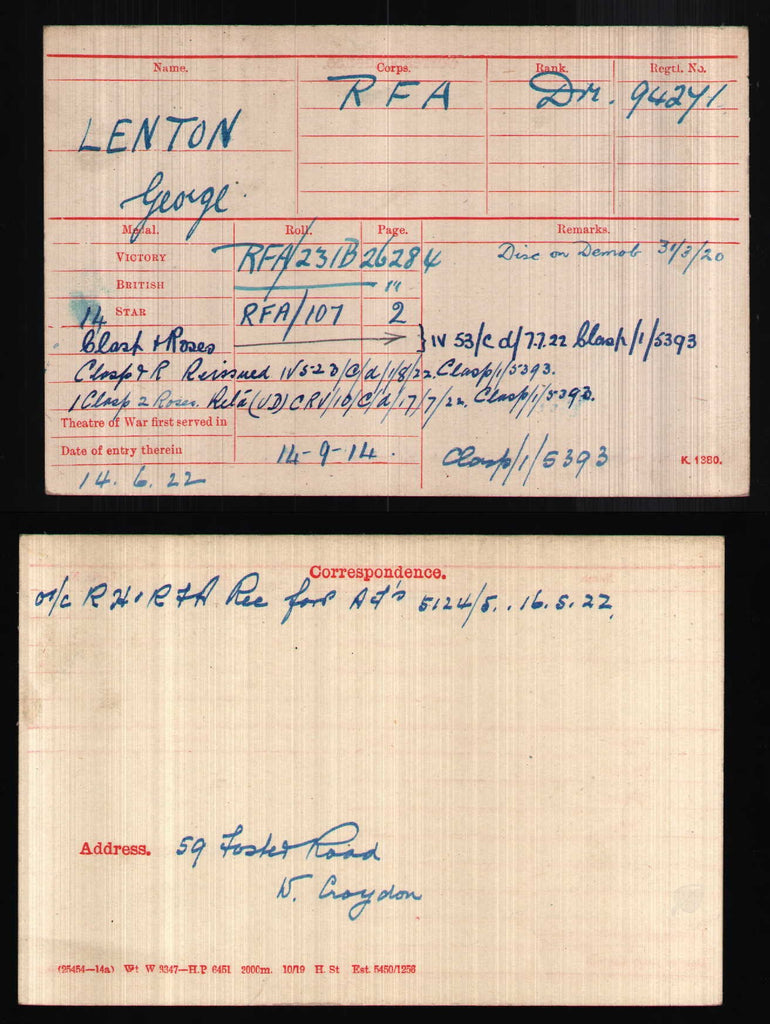 Name. Corps. Rank. Regtl. No.
RFA Dr. 94271
LENTON
George
Medal. Roll. Page. Remarks.
VICTORY RFA/231B 26284 Disc on Demob 31/3/20
BRITISH " "
14 STAR RFA/107 2
Clasp & Roses } IV 53/C d/7.7.22 Clasp/1/5393
Clasp & R Reissued IV 523/C/d/1/8/22. Clasp/1/5393.
1 Clasp 2 Roses. Retd (UD) CRV/10/C/d/17/7/22. Clasp/1/5393.
Theatre of War first served in
Date of entry therein 14-9-14. Clasp/1/5393 K. 1380.
14. 6. 22
Correspondence.
O i/c R H & R F A Rec forv A F's 5124/5. . 16. 5. 22.
Address. 59 Foster Road
W. Croydon
(25454—14a) Wt W 3347—H.P 6451 2000m. 10/19 H. St Est. 5450/1256